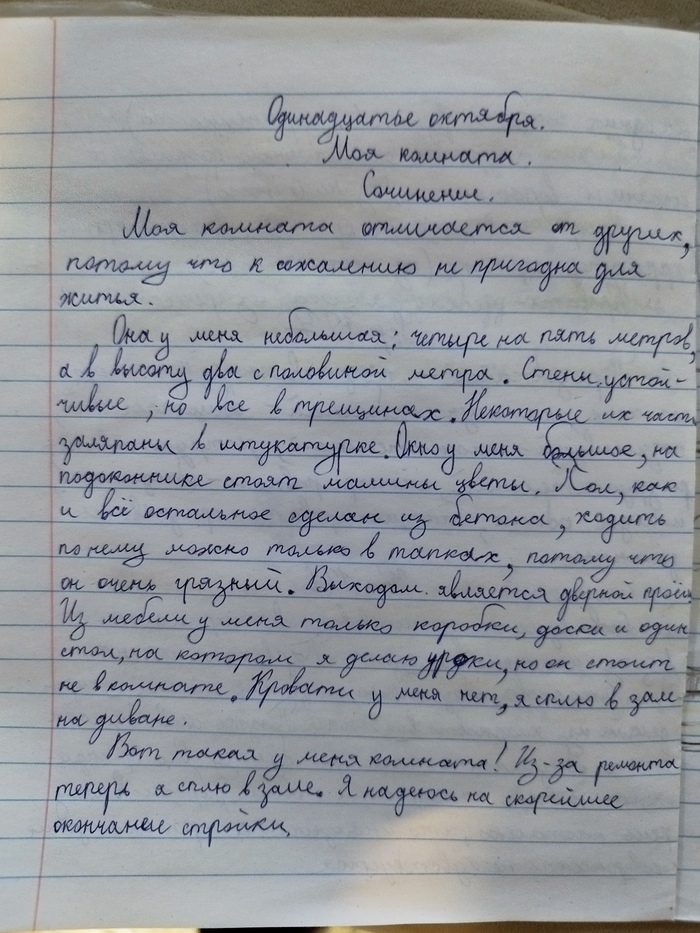 Одинадцатое октября.
Моя комната.
Сочинение.
Моя комната отличается от других,
потому что к сожалению не пригодна для
житья.
Она у меня небольшая: четыре на пять метров,
а в высоту два с половиной метра. Стены устой-
чивые, но все в трещинах. Некоторые их част
заляраны в штукатурке. Окно у меня большое, на
подоконнике стоят мамины цветы. Пол, как
и всё остальное сделан из бетона, ходить
по нему можно только в тапках, потому что
он очень грязный. Выходом является дверной проём
Из мебели у меня только коробки, доски и один
стол, на котором я делаю уроки, но он стоит
не в комнате. Кровати у меня нет, я сплю в зале
на диване.
Вот такая у меня комната! Из-за ремонта
теперь я сплю в зале. Я надеюсь на скорейшее
окончание стройки.